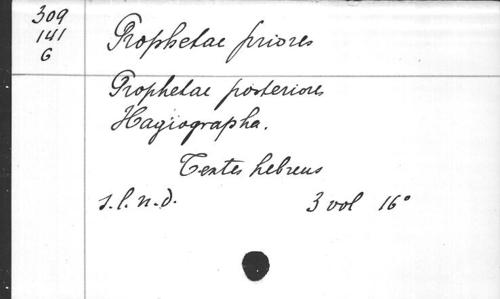 309
141
6
Prophetae priores
Prophetae posteriores
Hagiographa.
Textes hebreus
s.l.n.d. 3 vol 16°